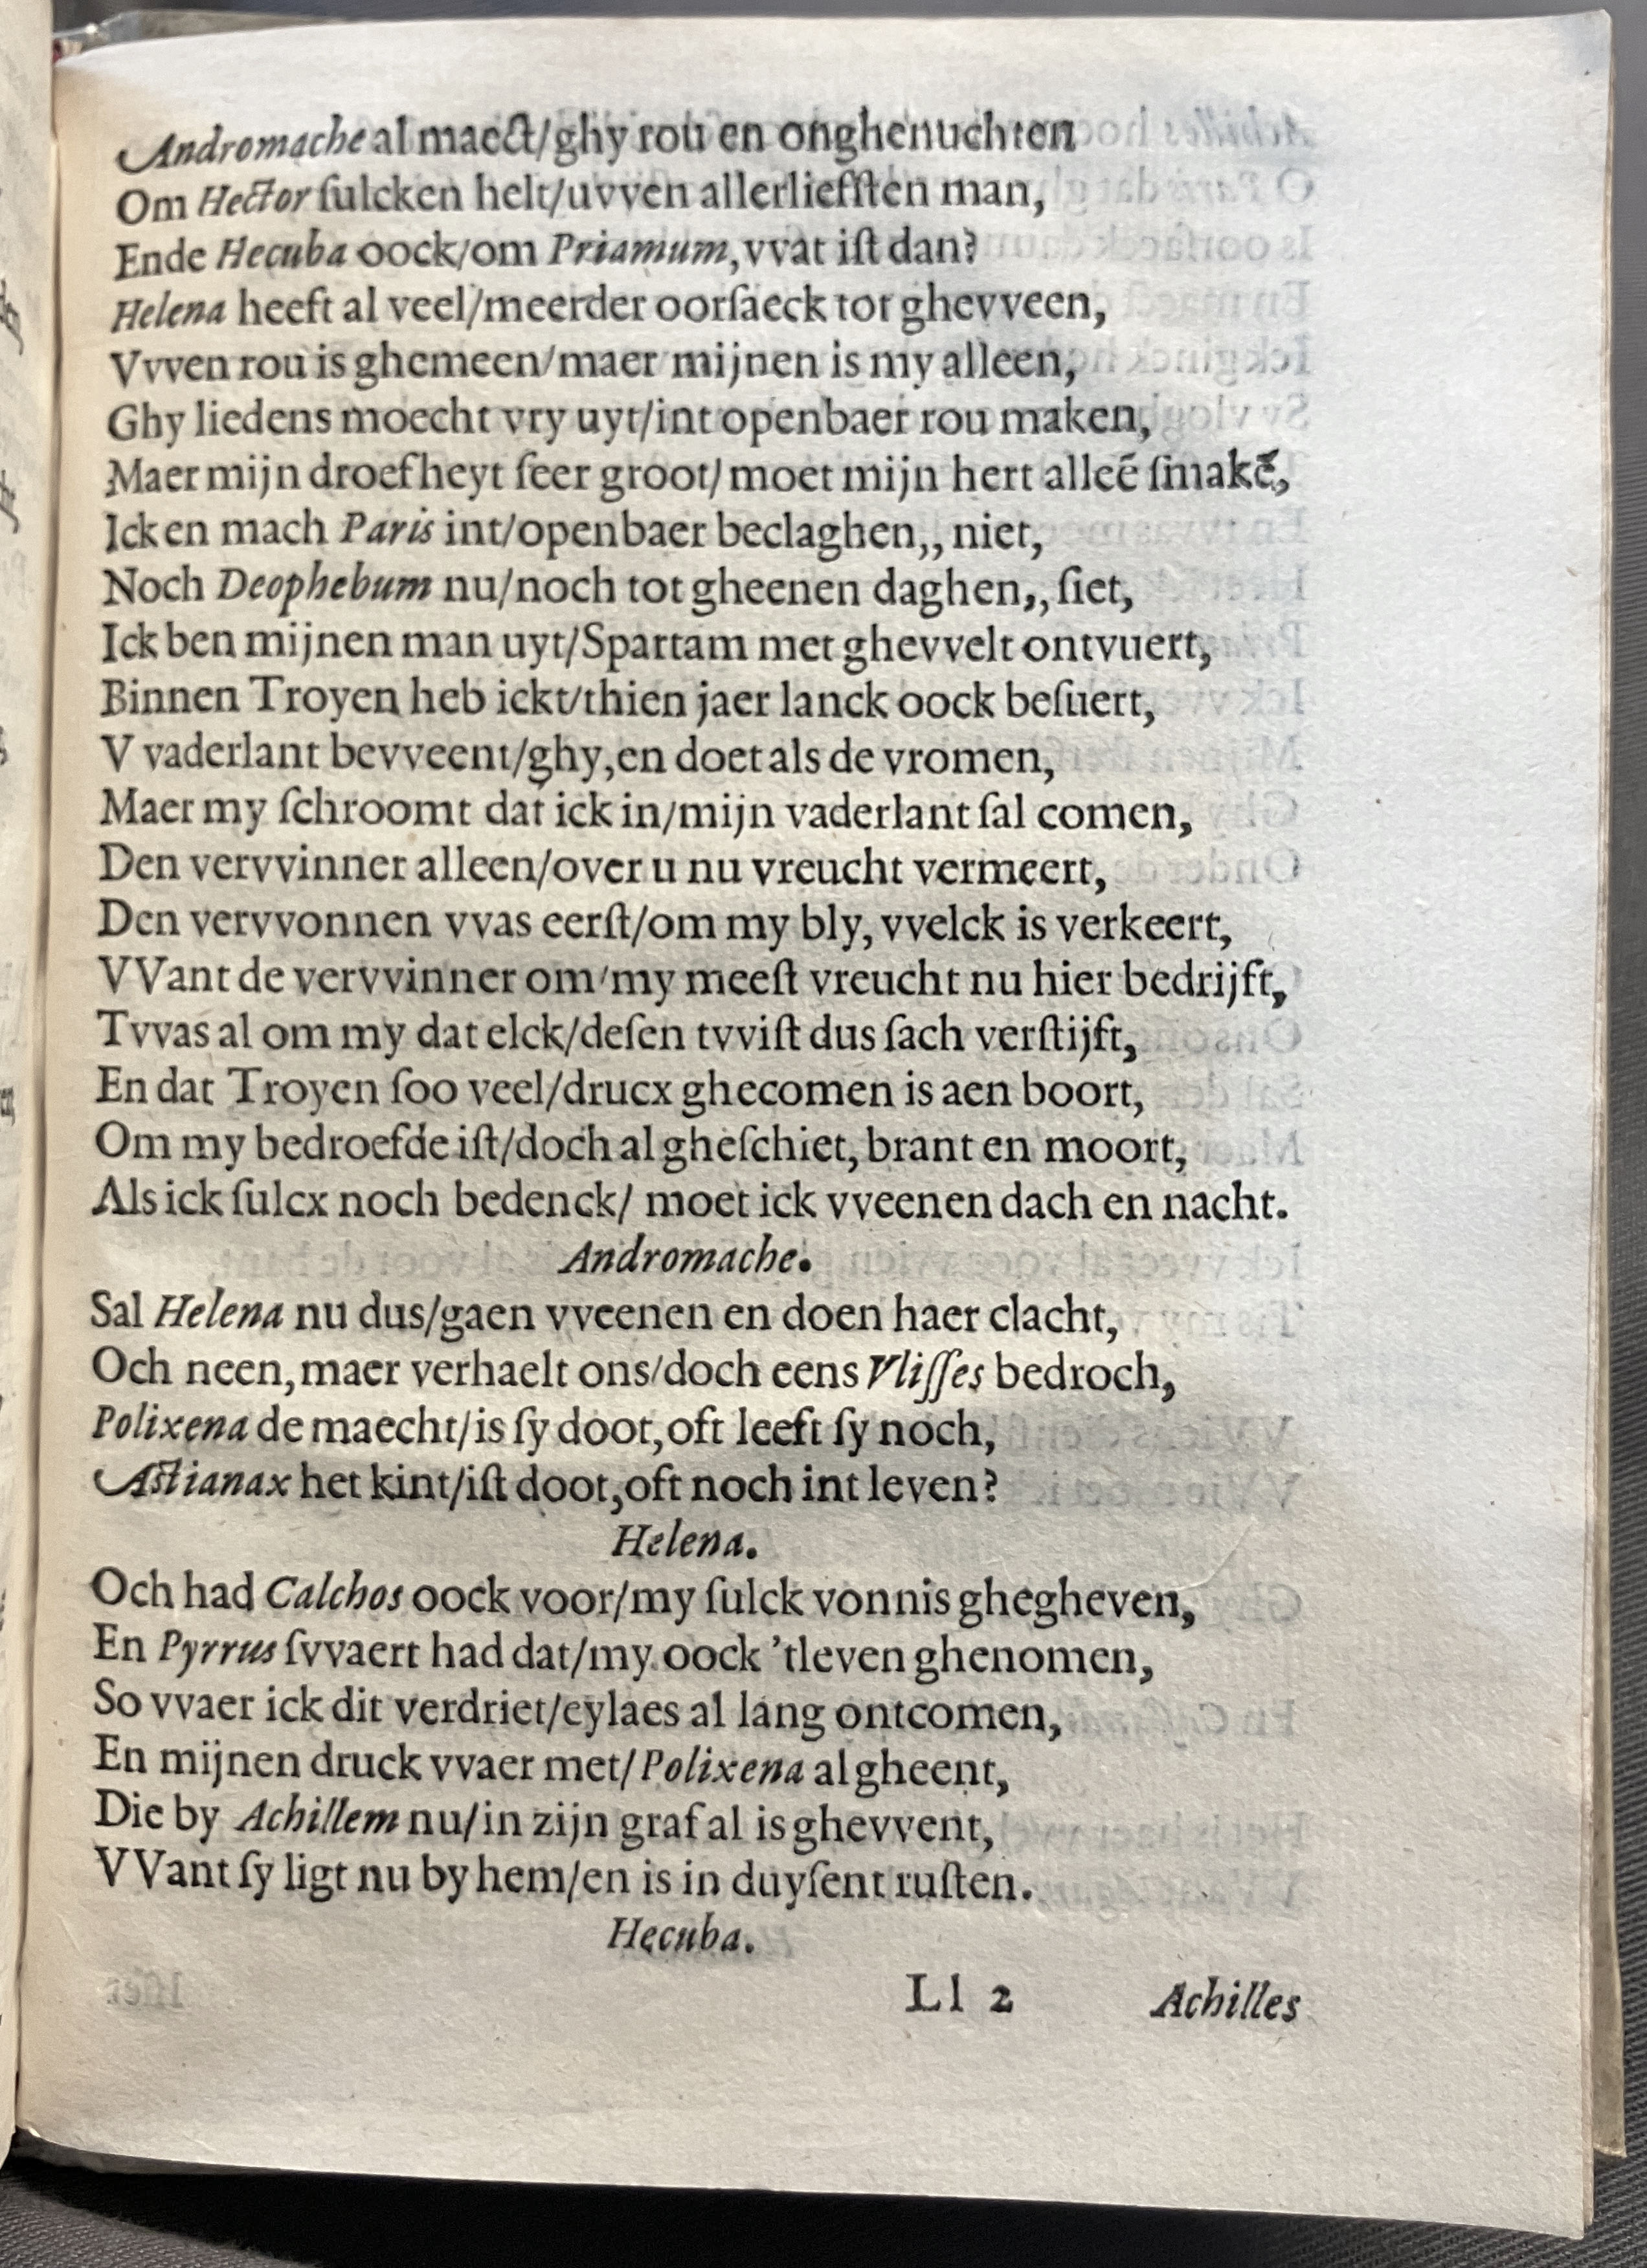 Andromache al maect/ghy rou en onghenuchten
Om Hector ſulcken helt/uvven allerliefſten man,
Ende Hecuba oock/om Priamum, vvat iſt dan?
Helena heeft al veel/meerder oorſaeck tot ghevveen,
Vvven rou is ghemeen/maer mijnen is my alleen,
Ghy liedens moecht vry uyt/int openbaer rou maken,
Maer mijn droefheyt ſeer groot/moet mijn hert alleē ſmakē,
Ick en mach Paris int/openbaer beclaghen,, niet,
Noch Deophebum nu/noch tot gheenen daghen,, ſiet,
Ick ben mijnen man uyt/Spartam met ghevvelt ontvuert,
Binnen Troyen heb ickt/thien jaer lanck oock beſuert,
V vaderlant bevveent/ghy, en doet als de vromen,
Maer my ſchroomt dat ick in/mijn vaderlant ſal comen,
Den vervvinner alleen/over u nu vreucht vermeert,
Den vervvonnen vvas eerſt/om my bly, vvelck is verkeert,
VVant de vervvinner om/my meeſt vreucht nu hier bedrijft,
Tvvas al om my dat elck/deſen tvviſt dus ſach verſtijft,
En dat Troyen ſoo veel/drucx ghecomen is aen boort,
Om my bedroefde iſt/doch al gheſchiet, brant en moort,
Als ick ſulcx noch bedenck/ moet ick vveenen dach en nacht.
Andromache.
Sal Helena nu dus/gaen vveenen en doen haer clacht,
Och neen, maer verhaelt ons/doch eens Vliſſes bedroch,
Polixena de maecht/is ſy doot, oft leeft ſy noch,
Aſtianax het kint/iſt doot, oft noch int leven?
Helena.
Och had Calchos oock voor/my ſulck vonnis ghegheven,
En Pyrrus ſvvaert had dat/my oock 'tleven ghenomen,
So vvaer ick dit verdriet/eylaes al lang ontcomen,
En mijnen druck vvaer met/Polixena al gheent,
Die by Achillem nu/in zijn graf al is ghevvent,
VVant ſy ligt nu by hem/en is in duyſent ruſten.
Hecuba.
Ll 2 Achilles